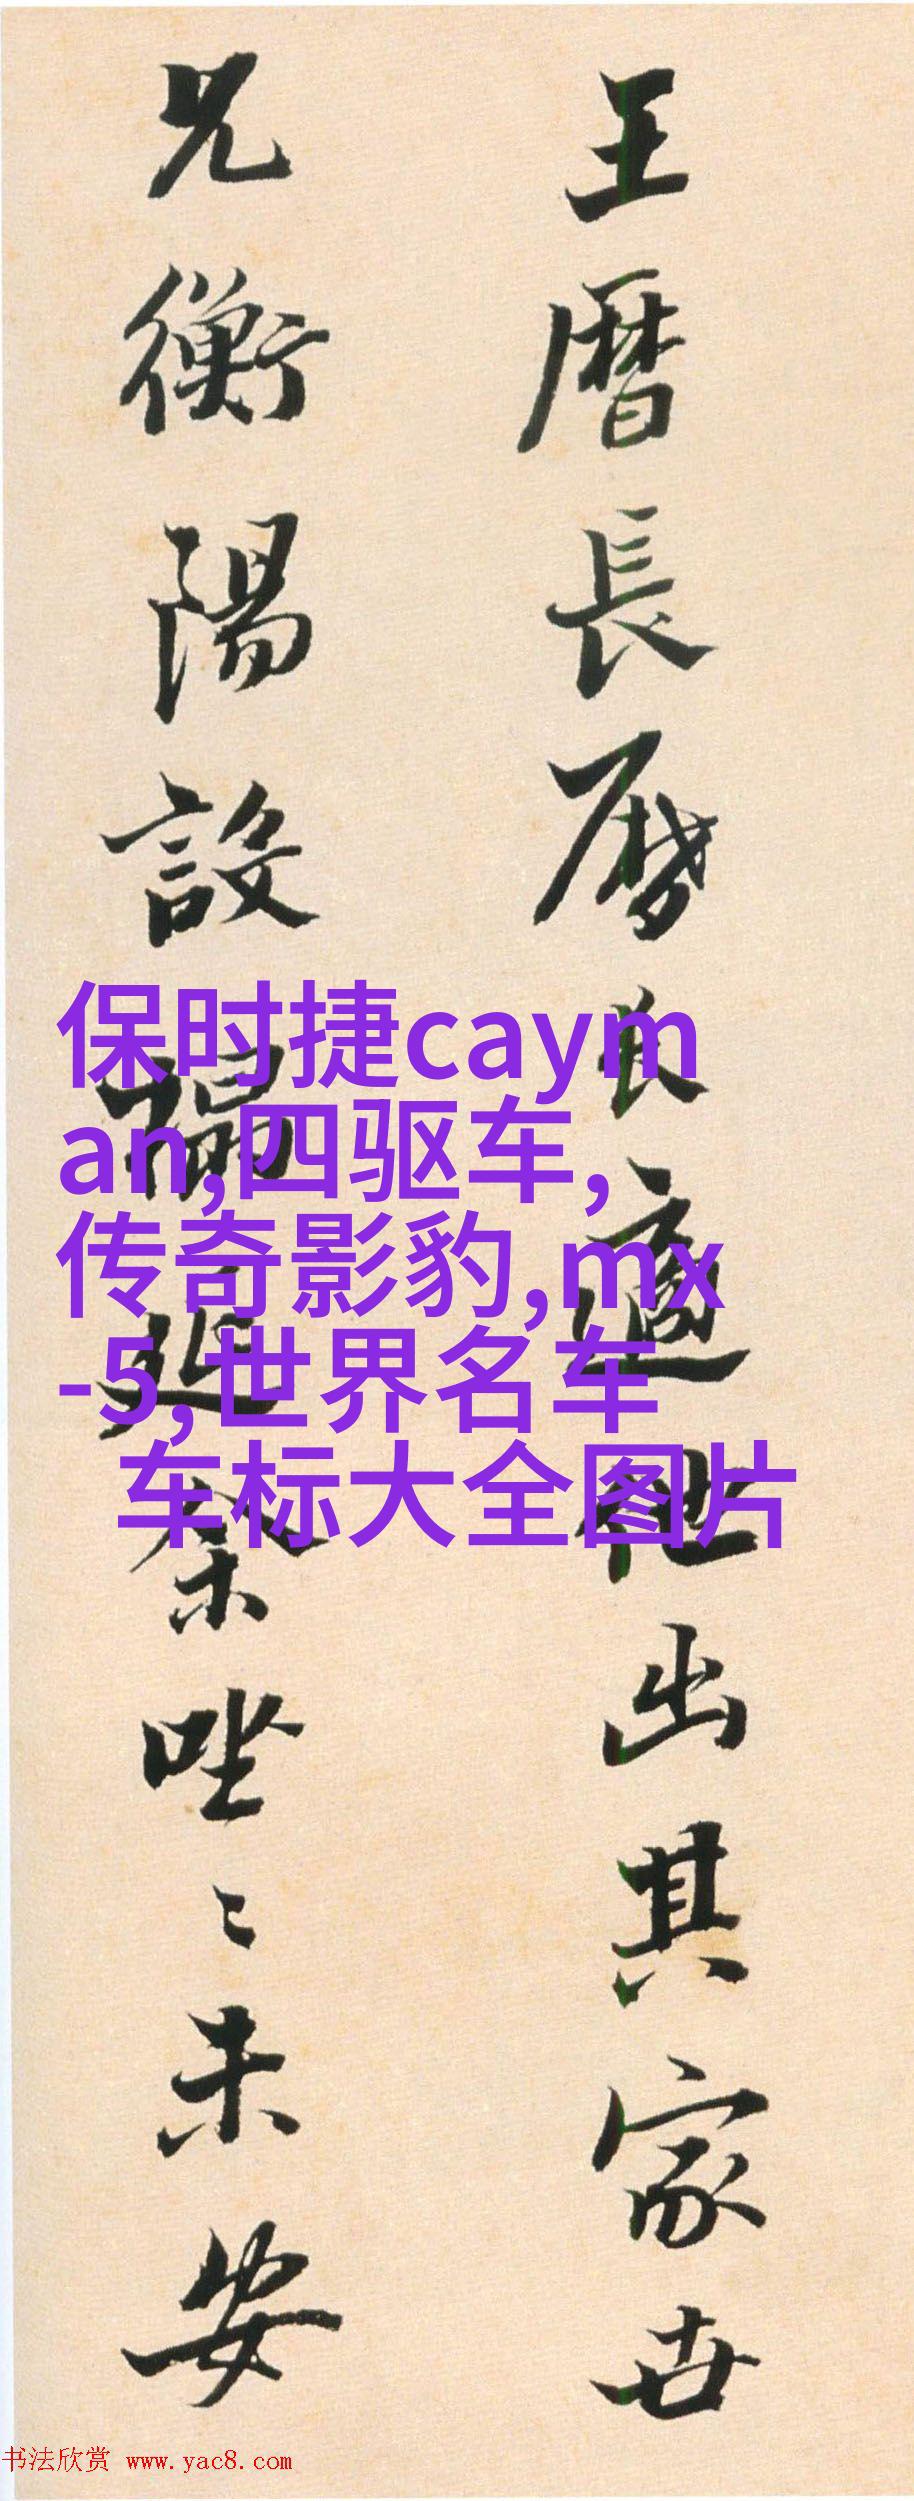 王曆長曆長適他出其家世
兄衡陽設揖延余坐〻未安
保时捷caym
an,四驱车,
传奇影豹,mx
-5,世界名车
车标大全图片
书法欣赏 www.yac8.com